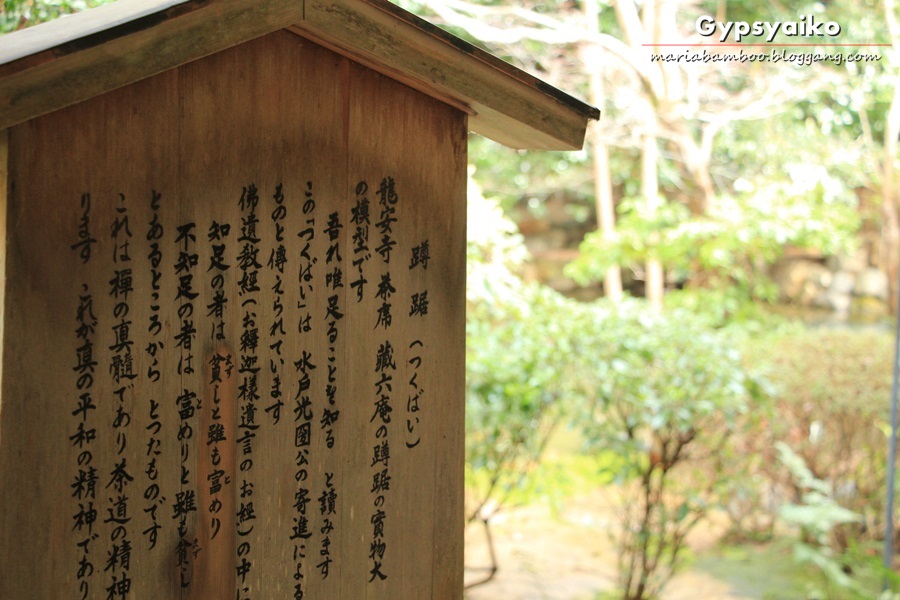 Gypsyaiko
mariabamboo.bloggang.com
蹲踞（つくばい）
龍安寺 茶席 藏六庵の蹲踞の實物大
の模型です
吾れ唯足ることを知る と讀みます
この「つくばい」は 水戸光圀公の寄進による
ものと傳えられています
佛遺教經（お釋迦樣遺言のお經）の中に
知足の者は 貧しと雖も富めり
不知足の者は 富めりと雖も貧し
とあるところから とつたものです
これは禪の真髓であり茶道の精神
ります これが真の平和の精神であり